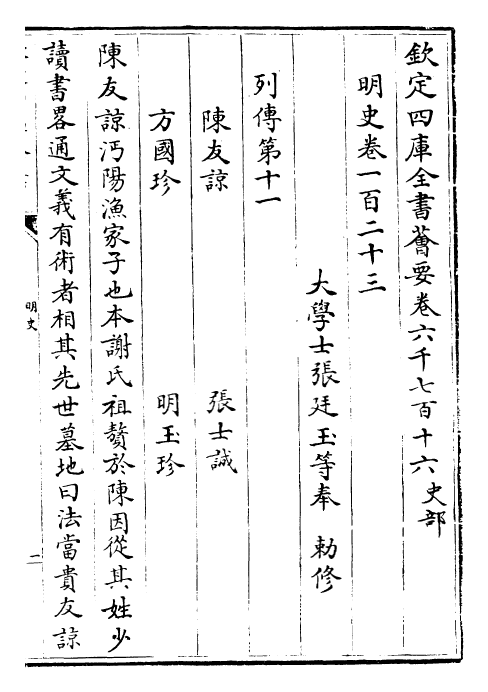 欽定四庫全書薈要卷六千七百十六史部
明史卷一百二十三
大學士張廷玉等奉 勅修
列傳第十一
陳友諒 張士誠
方國珍 明玉珍
陳友諒沔陽漁家子也本謝氏祖贅於陳因從其姓少
讀書畧通文義有術者相其先世墓地曰法當貴友諒
明史